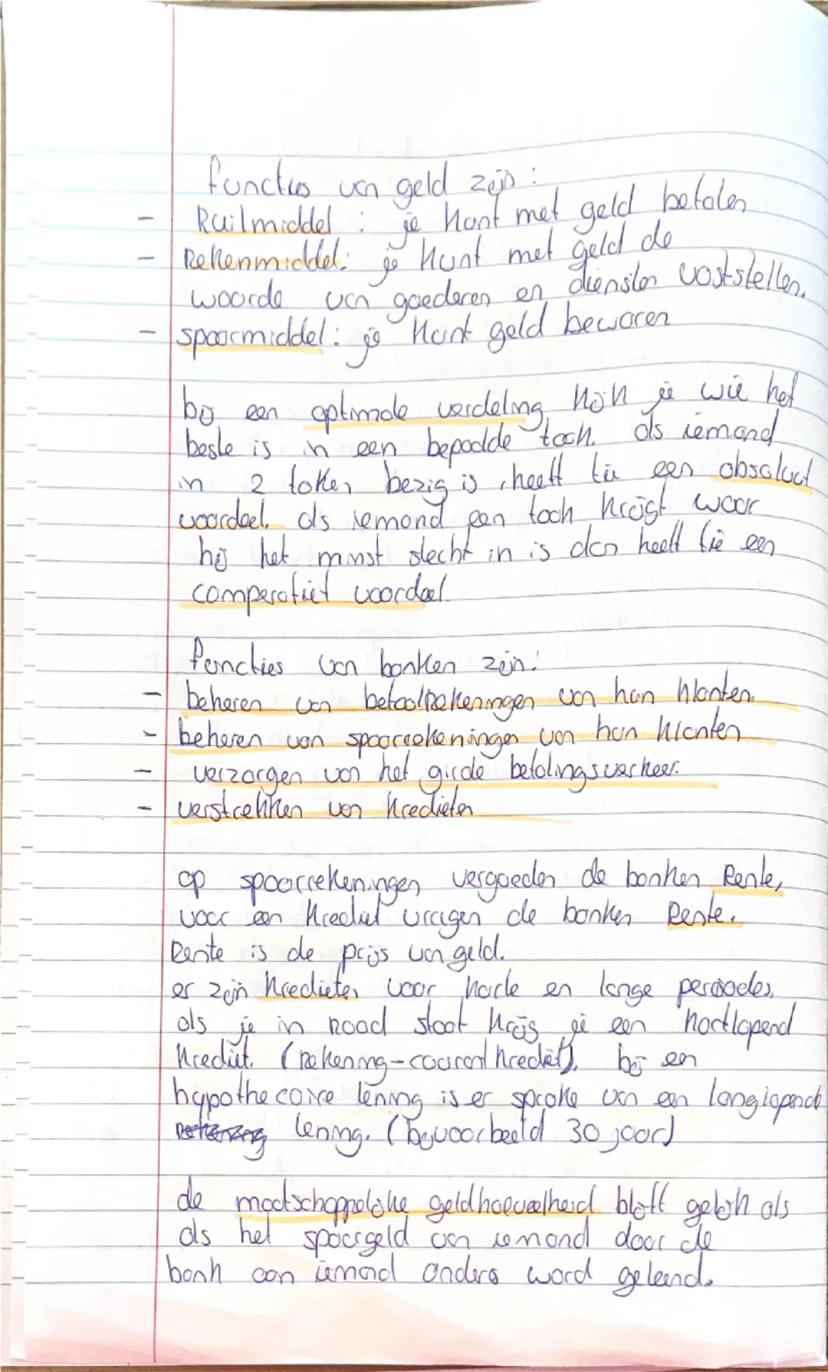 functies van geld zijn:
- Ruilmiddel: je kunt met geld betalen
- Rekenmiddel: je kunt met geld de
waarde van goederen en diensten vaststellen.
- spaarmiddel: je kunt geld bewaren
bij een optimale verdeling kijk je wie het
beste is in een bepaalde taak. als iemand
in 2 taken bezig is, heeft die een absoluut
voordeel. als iemand een taak krijgt waar
hij het minst slecht in is dan heeft die een
comperatief voordeel.
functies van banken zijn:
- beheren van betaalrekeningen van hun klanten.
- beheren van spaarrekeningen van hun klanten
- verzorgen van het girale betalingsverkeer.
- verstrekken van kredieten
op spaarrekeningen vergoeden de banken Rente,
voor een krediet vragen de banken Rente.
Rente is de prijs van geld.
er zijn kredieten voor korte en lange periodes,
als je in rood staat krijg je een kortlopend
krediet. (rekening-courant krediet). bij en
hypothecaire lening is er sprake van een langlopende
lening. (bijvoorbeeld 30 jaar)
de maatschappelijke geldhoeveelheid blijft gelijk als
als het spaargeld van iemand door de
bank aan iemand anders word geleend.